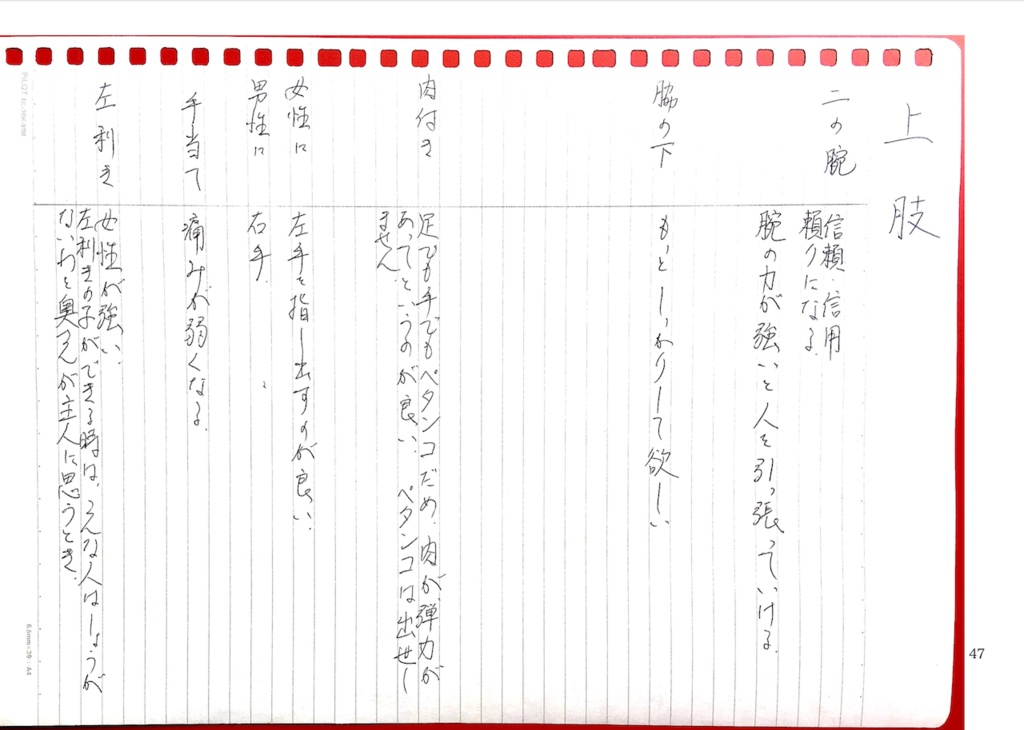 上肢
二の腕
信頼・信用
頼りになる.
腕の力が強いと人を引っ張っていける.
脇の下
もっとしっかりして欲しい
肉付き
足でも手でもペタンコだめ.肉が弾力が
あって、というのが良い.ペタンコは出世し
ません
女性に
左手を指し出すのが良い.
男性に
右手. 〃
手当て
痛みが弱くなる.
左利き
女性が強い.
左利きの子ができる時は、こんな人はしょうが
ないわと奥さんが主人に思うとき.
6.5mm×39・A4
47